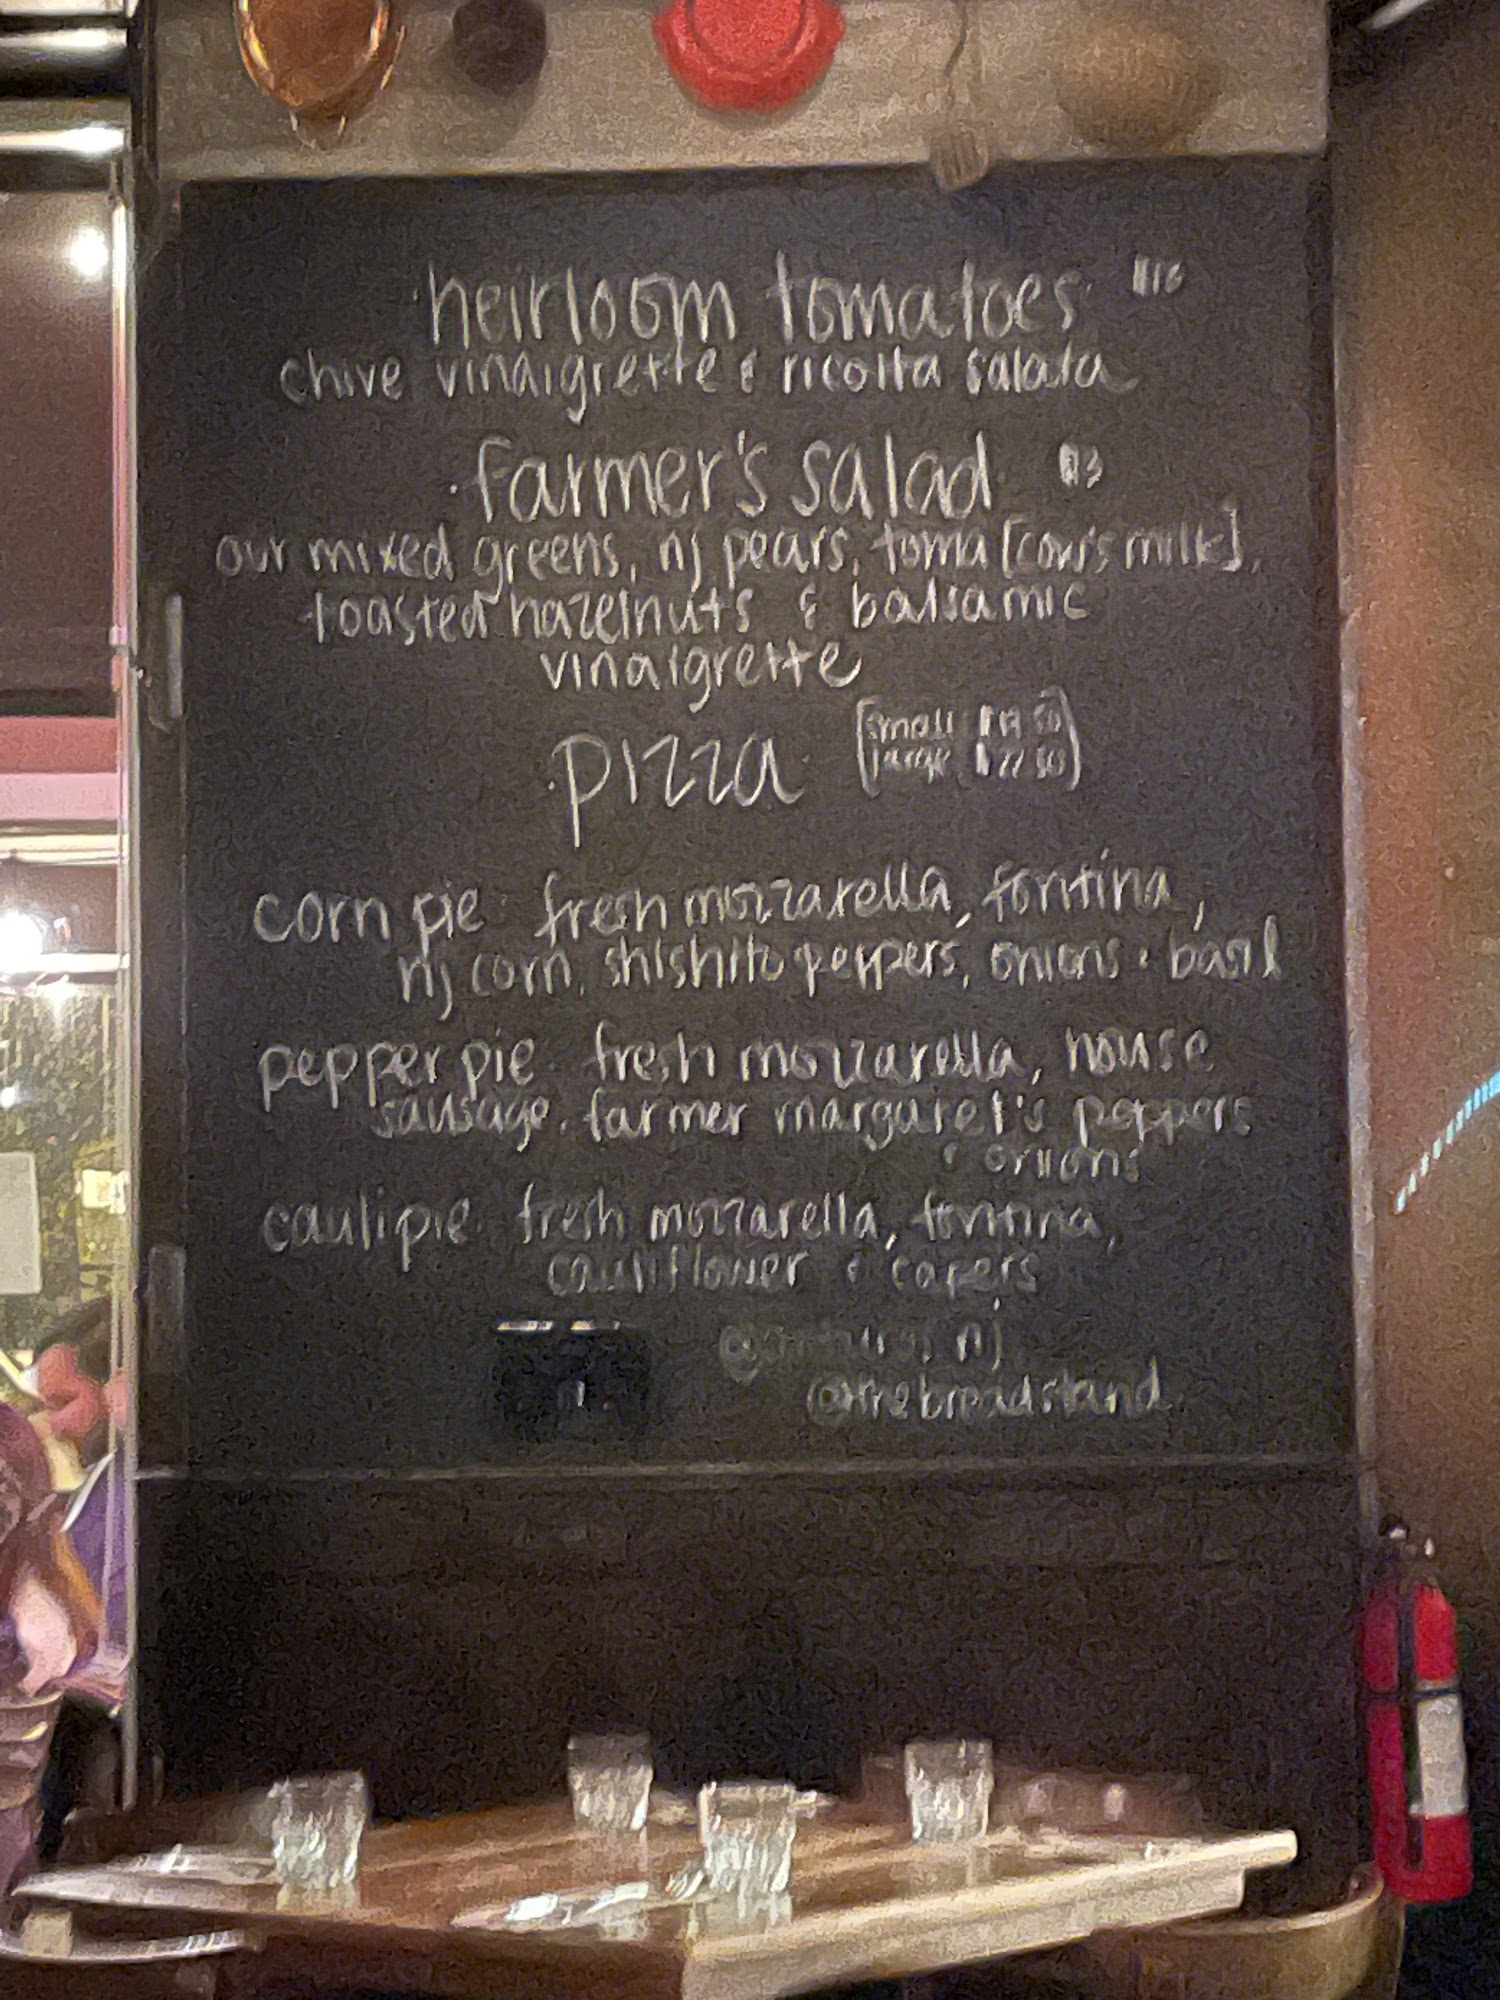 heirloom tomatoes
chive vinaigrette & ricotta salata
farmer's salad
our mixed greens, nj pears, toma [cow's milk],
toasted hazelnuts & balsamic
vinaigrette
pizza
small
large $22.50
corn pie fresh mozzarella, fontina,
nj corn, shishito peppers, onions & basil
pepper pie fresh mozzarella, house
sausage, farmer margaret's peppers
& onions
cauli pie fresh mozzarella, fontina,
cauliflower & capers
@thebreadstand